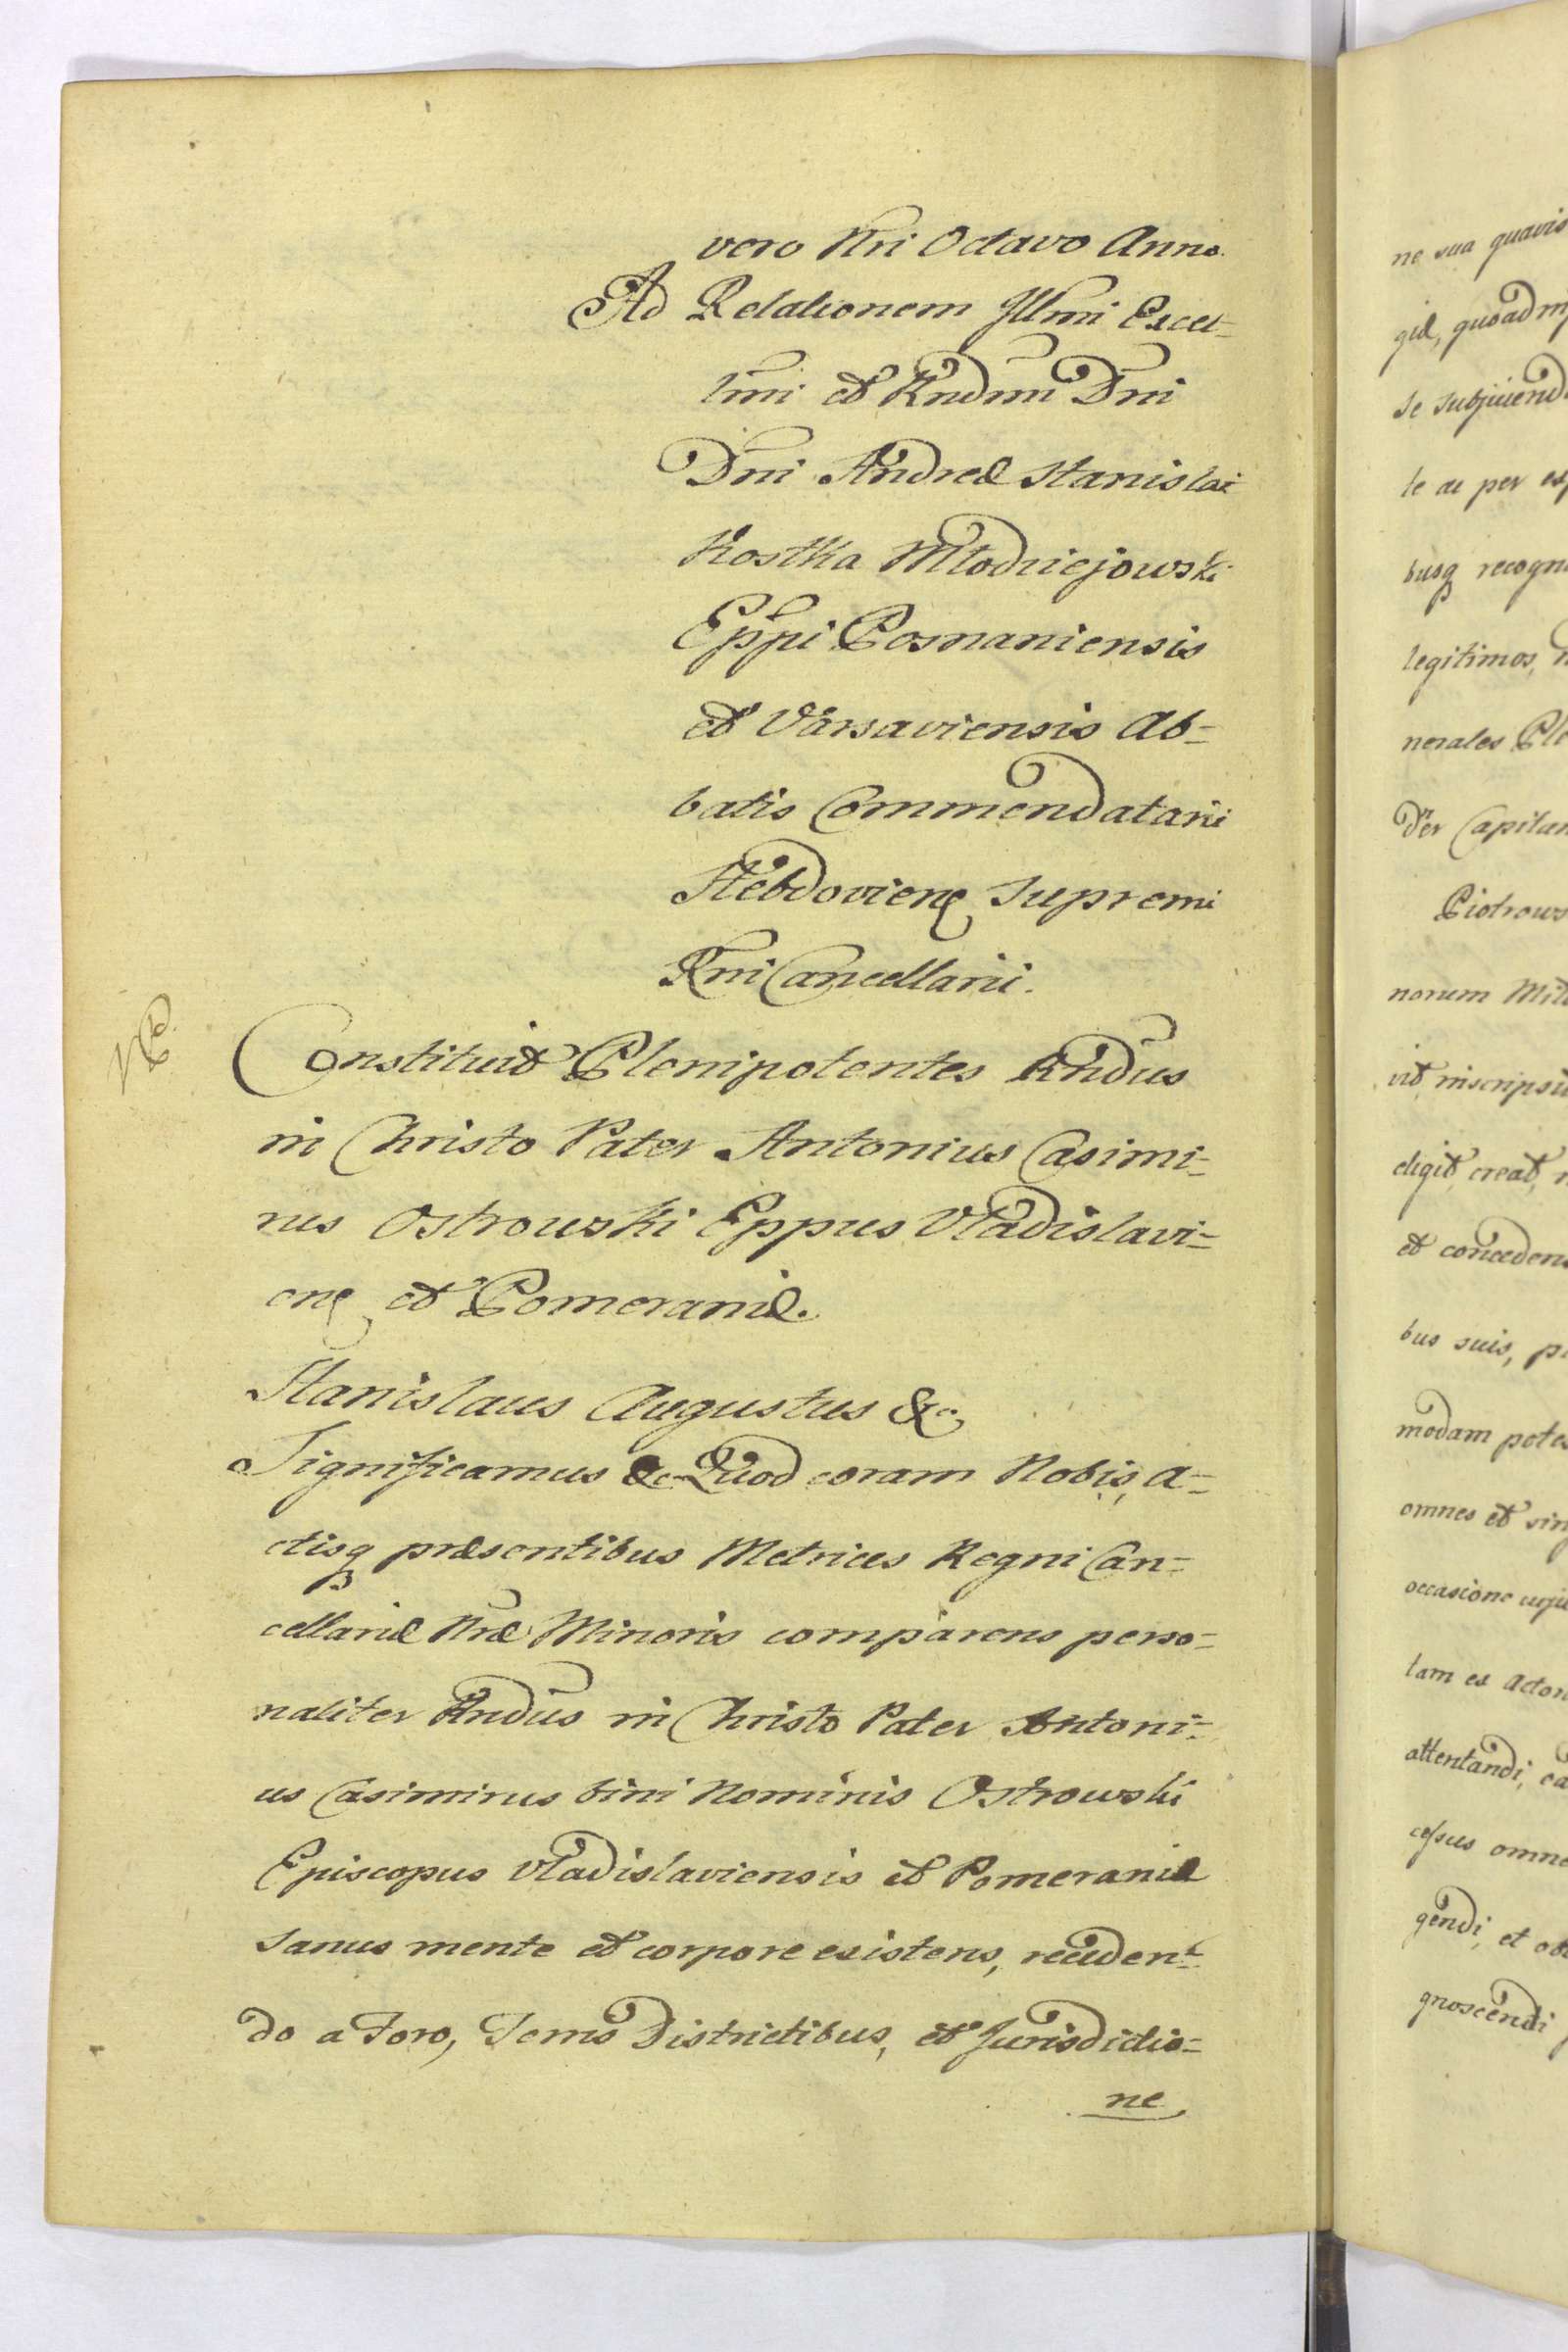 vero Nri Octavo Anno.
Ad Relationem Jllmi Excel=
lmi et Rndmi Dni
Dni Andreæ Stanislai
Kostka Młodziejowski
Eppi Posnaniensis
et Varsaviensis Ab=
batis Commendatarii
Hebdovien supremi
Rni Cancellarii.
Constituit Plenipotentes Rndus
in Christo Pater Antonius Casimi=
rus Ostrowski Eppus Vladislavi=
en et Pomeraniæ.
Stanislaus Augustus &c
Significamus &c Quod coram Nobis, a=
ctisq præsentibus Metrices Regni Can=
cellariæ Nræ Minoris comparens perso=
naliter Rndus in Christo Pater Antoni=
us Casimirus bini Nominis Ostrowski
Episcopus Vladislaviensis et Pomeraniæ
sanus mente et corpore existens, receden=
do a Foro, Terris Districtibus, et Jurisdictio=
ne
ne sua quavis
giæ, quoad
se subjiciend
te ac per
busq recogn
legitimos,
nerales Ple
Capitan
Piotrows
norum
vit, inscripsit
eligit, creat,
et conceden
bus suis,
modam potes
omnes et sin
occasione
tam ex Acton
attentandi,
cessus omne
gendi, et
gnoscendi